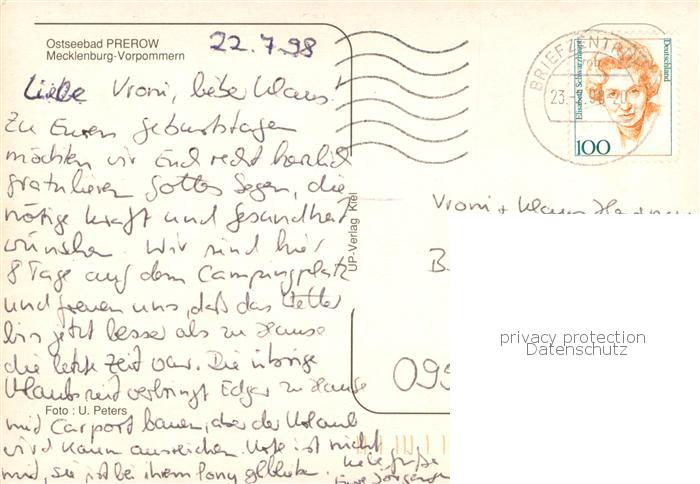 Ostseebad PREROW
Mecklenburg-Vorpommern
22.7.98
Liebe Vroni, lieber Klaus!
Zu Euren Geburtstagen
möchten wir Euch recht herzlich
gratulieren Gottes Segen, die
nötige Kraft und Gesundheit
wünschen. Wir sind hier
8 Tage auf dem Campingplatz
und freuen uns, daß das Wetter
bis jetzt besser als zu Hause
die letzte Zeit war. Die übrige
Urlaubszeit verbringt Edgar zu Hause
mit Carport bauen, aber der Urlaub
wird kaum ausreichen. Ute ist nicht
mit, sie ist bei ihrem Pony geblieben.
Liebe Grüße
Foto : U. Peters
UP-Verlag Kiel
BRIEFZENTRUM
23.-7.98-20
Elisabeth Schwarzhaupt
Deutschland
100
Vroni + Klaus
B
095
privacy protection
Datenschutz